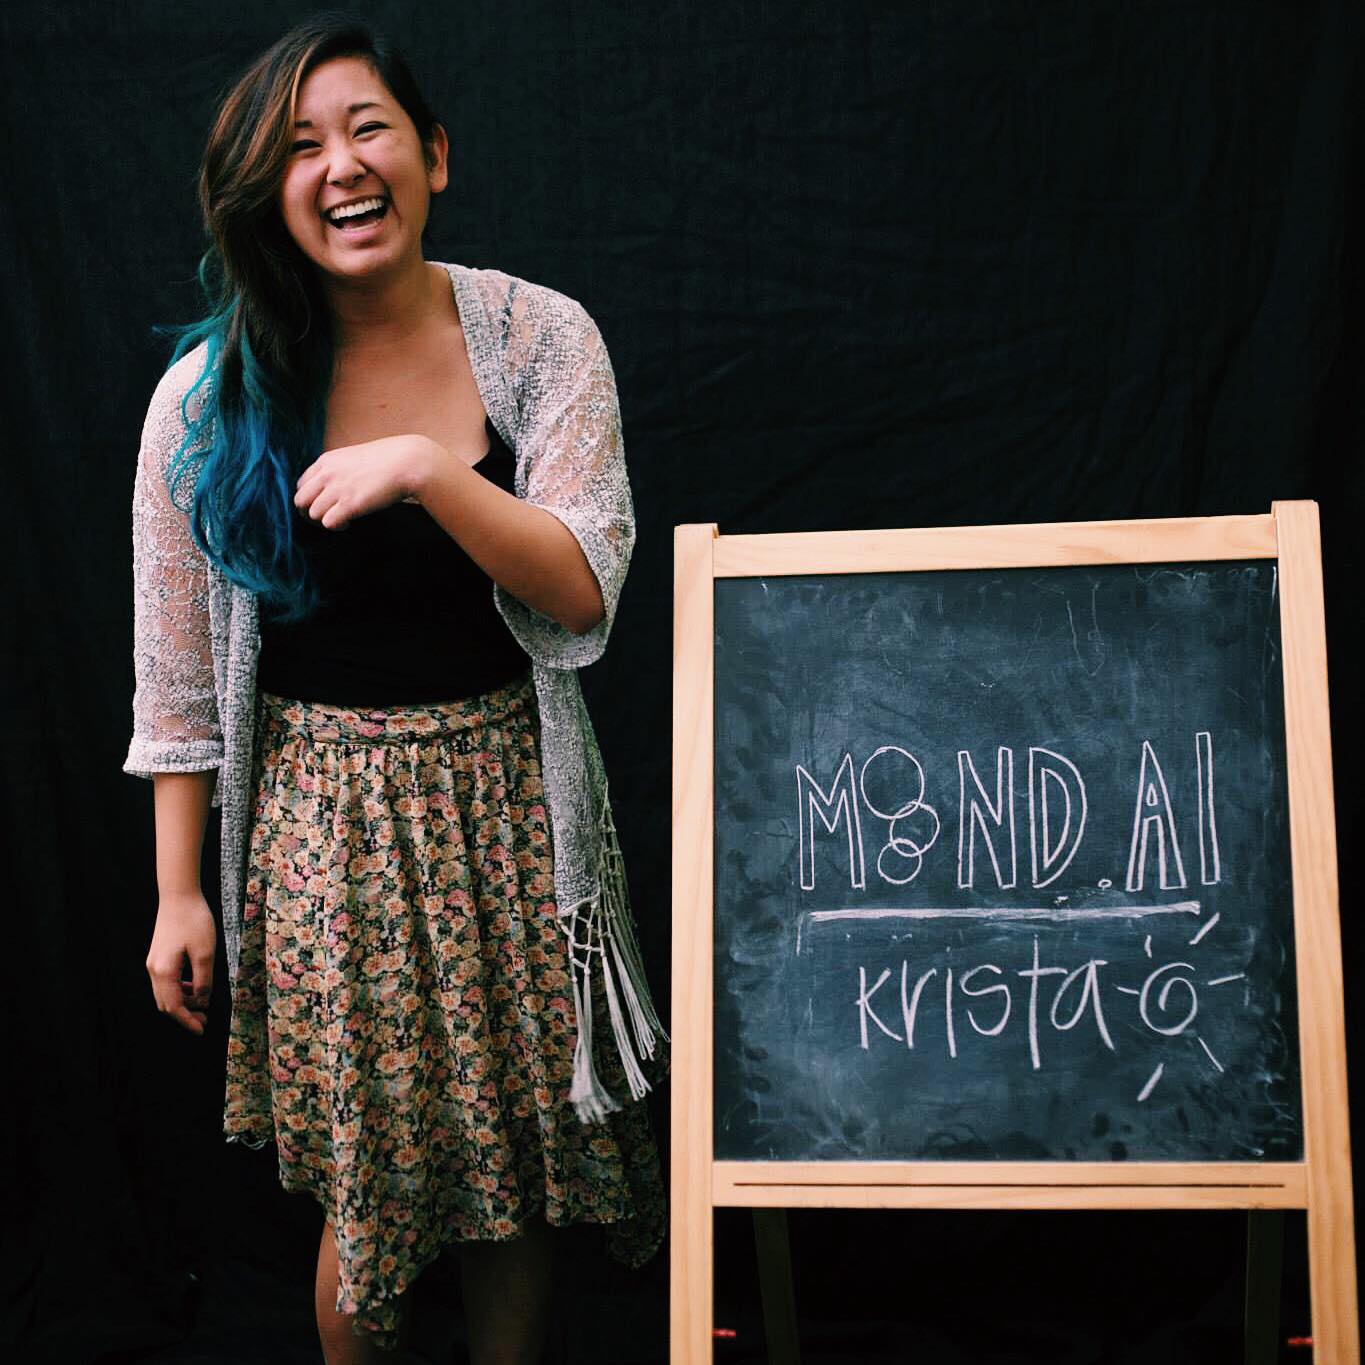 MOND.AI
krista